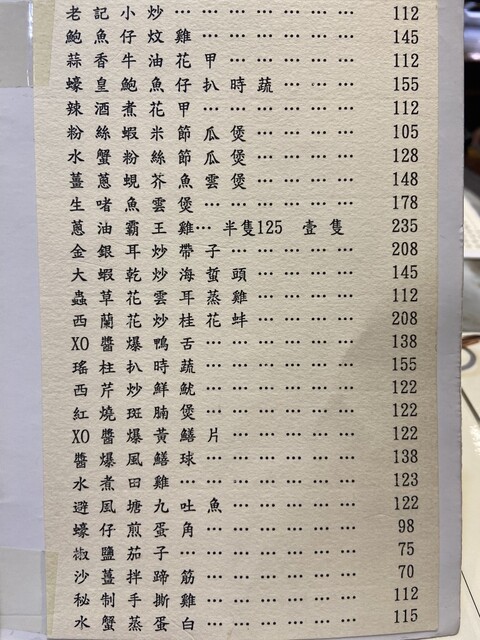 老記小炒… … … … … … … 112
鮑魚仔炆雞… … … … … … 145
蒜香牛油花甲… … … … … 112
蠔皇鮑魚仔扒時蔬… … … 155
辣酒煮花甲… … … … … … 112
粉絲蝦米節瓜煲… … … … 105
水蟹粉絲節瓜煲… … … … 128
薑蔥蜆芥魚雲煲… … … … 148
生啫魚雲煲… … … … … … 178
蔥油霸王雞… 半隻125 壹隻 235
金銀耳炒帶子… … … … … 208
大蝦乾炒海蜇頭… … … … 145
蟲草花雲耳蒸雞… … … … 112
西蘭花炒桂花蚌… … … … 208
XO醬爆鴨舌… … … … … … 138
瑤柱扒時蔬… … … … … … 155
西芹炒鮮魷… … … … … … 122
紅燒斑腩煲… … … … … … 122
XO醬爆黃鱔片… … … … … 122
醬爆風鱔球… … … … … … 138
水煮田雞… … … … … … … 123
避風塘九吐魚… … … … … 122
蠔仔煎蛋角… … … … … … 98
椒鹽茄子… … … … … … … 75
沙薑拌蹄筋… … … … … … 70
秘制手撕雞… … … … … … 112
水蟹蒸蛋白… … … … … … 115